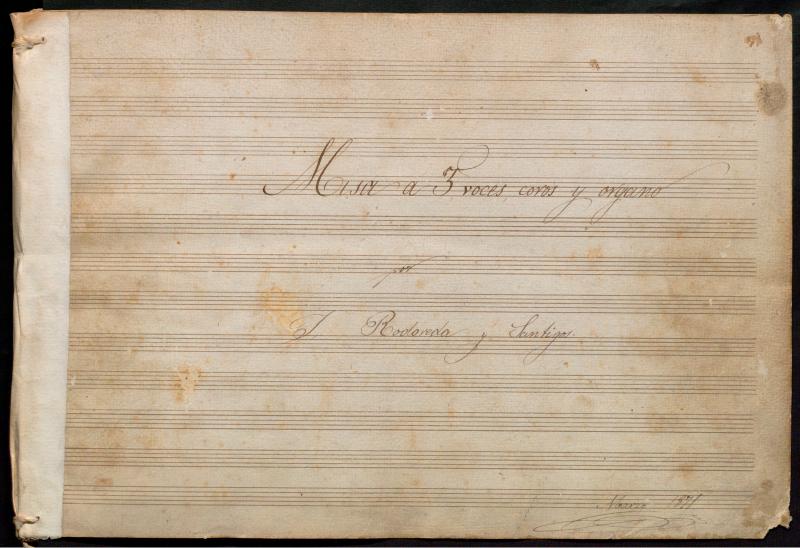 Misa a 3 voces, coros y organo
por
J Rodoreda y Santigos.
Marzo 1871